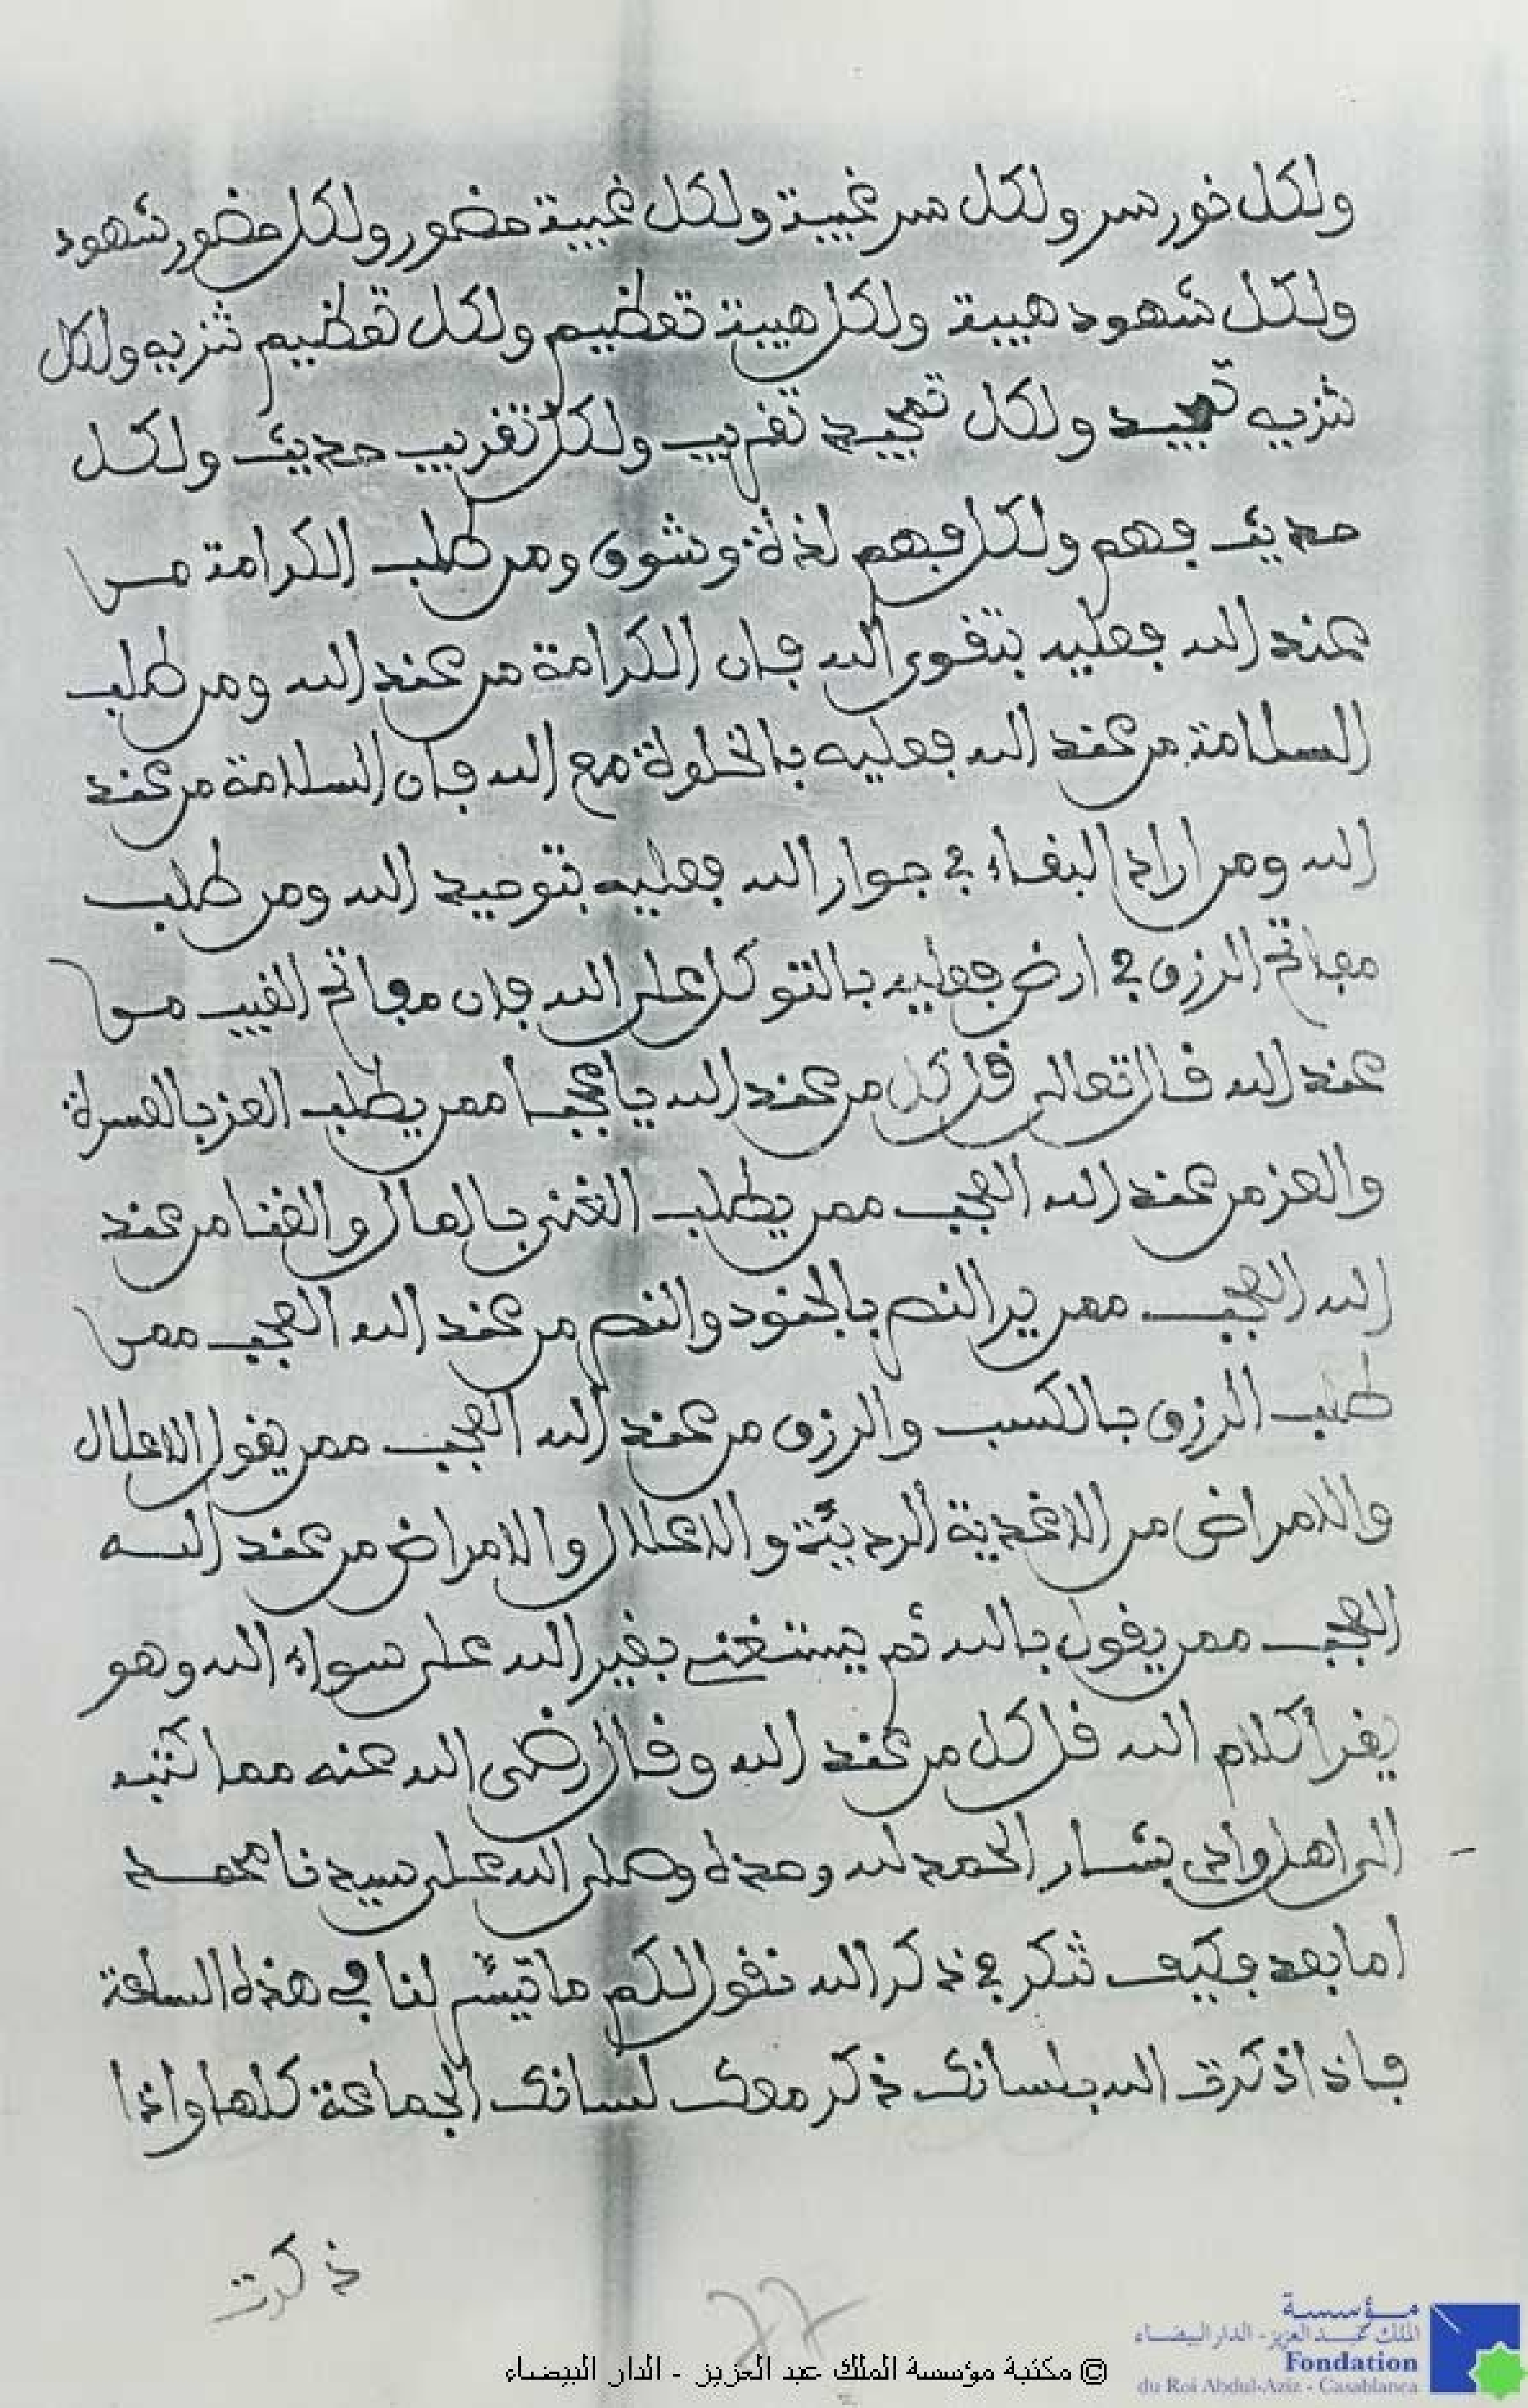 ولكل نور سر ولكل سر غيبة ولكل غيبة حضور ولكل حضور شهود
ولكل شهود هيبة ولكل هيبة تعظيم ولكل تعظيم تنزيه ولكل
تنزيه تمجيد ولكل تمجيد تقريب ولكل تقريب حديث ولكل
حديث فهم ولكل فهم لذة وشوق ومن طلب الكرامة من
عند الله فعليه بتقوى الله فان الكرامة من عند الله ومن طلب
السلامة من عند الله فعليه بالخلوة مع الله فان السلامة من عند
الله ومن اراد البقاء في جوار الله فعليه بتوحيد الله ومن طلب
مفاتح الرزق في ارض فعليه بالتوكل على الله فان مفاتح الغيب من
عند الله قال تعالى قل كل من عند الله يا عجبا ممن يطلب العز بالعسرة
والعز من عند الله العجب ممن يطلب الغنى بالمال والغنا من عند
الله العجب ممن ير النصر بالجنود والنصر من عند الله العجب ممن
طلب الرزق بالكسب والرزق من عند الله العجب ممن يقول الاعلال
والامراض من الاغذية الرديئة والاعلال والامراض من عند الله
العجب ممن يقول بالله ثم يستغنى بغير الله على سواء الله وهو
يقرا كلام الله قل كل من عند الله وقال رضى الله عنه مما كتبه
الى اهل وادى بشار الحمد لله وحده وصلى الله على سيدنا محمد
اما بعد فكيف تكر في ذكر الله نقول لكم ما تيسر لنا في هذه الساعة
فاذا اذكرت الله بلسانك ذكر معك لسانك الجماعة كلها واذا
ذكرت
77
© مكتبة مؤسسة الملك عبد العزيز - الدار البيضاء
مؤسسة
الملك عبد العزيز - الدار البيضاء
Fondation
du Roi Abdul-Aziz - Casablanca